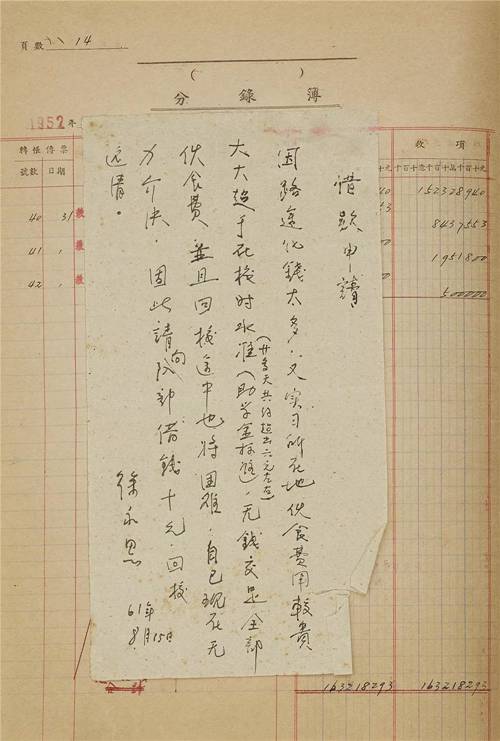 頁數 14
( )
分錄簿
1952年
轉帳傳票
號數 日期
收項
40 31
41
42
152328940
8437553
1951800
500000
借款申請
因路遠化錢太多，又实习所在地伙食費用較貴
(廿多天共约超出六元左右)
大大超于在校时水准(助学金标准)，无錢交足全部
伙食費，並且回校途中也將困难，自己現在无
力介决，因此請向队部借錢十元，回校
还清。
徐永思
61年
8月15日
163218293 163218293